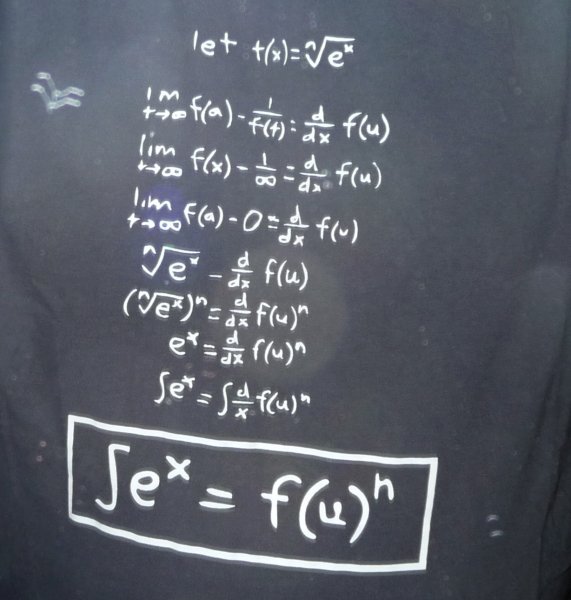 let f(x)=ⁿ√eˣ
lim t→∞ f(a) - 1/f(t) = d/dx f(u)
lim t→∞ f(x) - 1/∞ = d/dx f(u)
lim t→∞ f(a) - 0 = d/dx f(u)
ⁿ√eˣ - d/dx f(u)
(ⁿ√eˣ)ⁿ = d/dx f(u)ⁿ
eˣ = d/dx f(u)ⁿ
∫eˣ = ∫ d/x f(u)ⁿ
∫eˣ = f(u)ⁿ